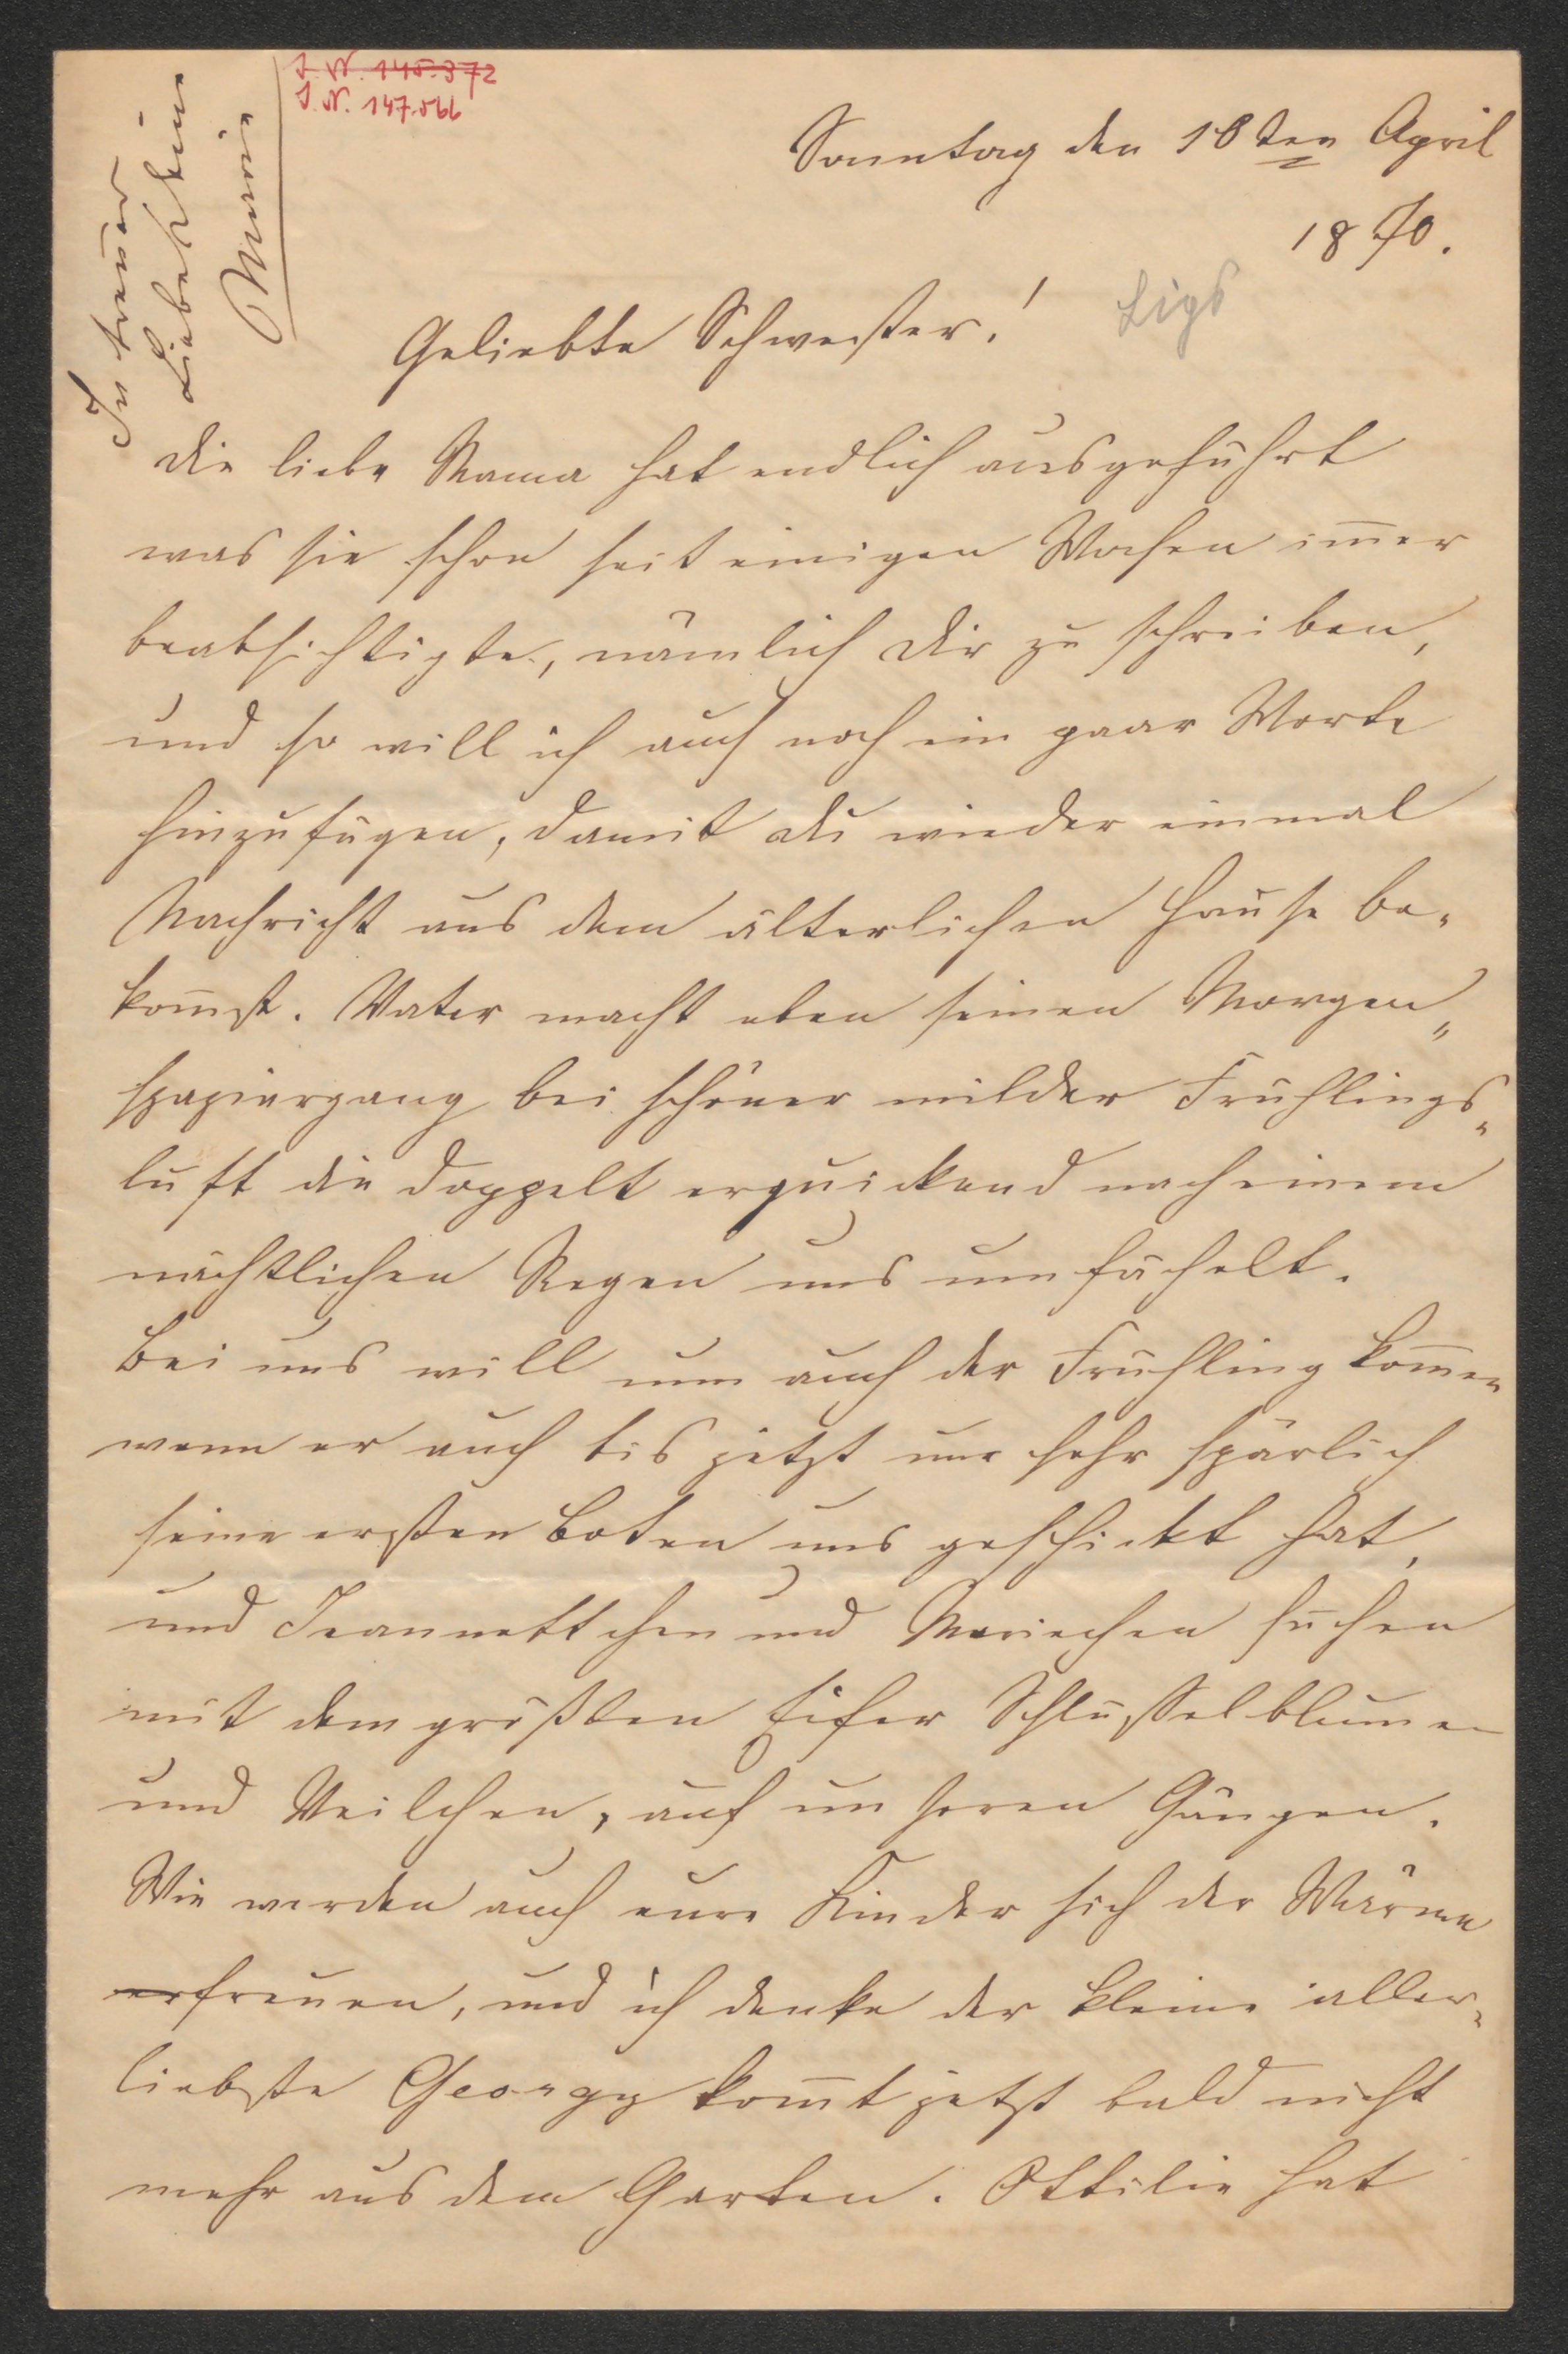 I. N. 145.372
I. N. 147.566
In treuer
Liebe Deine
Marie
Sonntag den 10ten April
1870.
Geliebte Schwester!
Die liebe Mama hat endlich ausgeführt
was sie schon seit einigen Wochen im̄er
beabsichtigte, nämlich Dir zu schreiben,
und so will ich auch noch ein paar Worte
hinzufügen, damit Du wieder einmal
Nachricht aus dem älterlichen Hause be„
kom̄st. Vater macht eben seinen Morgen„
spaziergang bei schöner milder Frühlings„
luft die doppelt erquickend nach einem
nächtlichen Regen uns umfächelt.
Bei uns will nun auch der Frühling kom̄en
wenn er auch bis jetzt nur sehr spärlich
seine ersten Boten uns geschickt hat,
und Jeannettchen und Mariechen suchen
mit dem größten Eifer Schlüsselblumen
und Veilchen, auf unseren Gängen.
Wie werden auch eure Kinder sich der Wärme
erfreuen, und ich denke der kleine aller„
liebste Georgy kom̄t jetzt bald nicht
mehr aus dem Garten. Ottilie hat